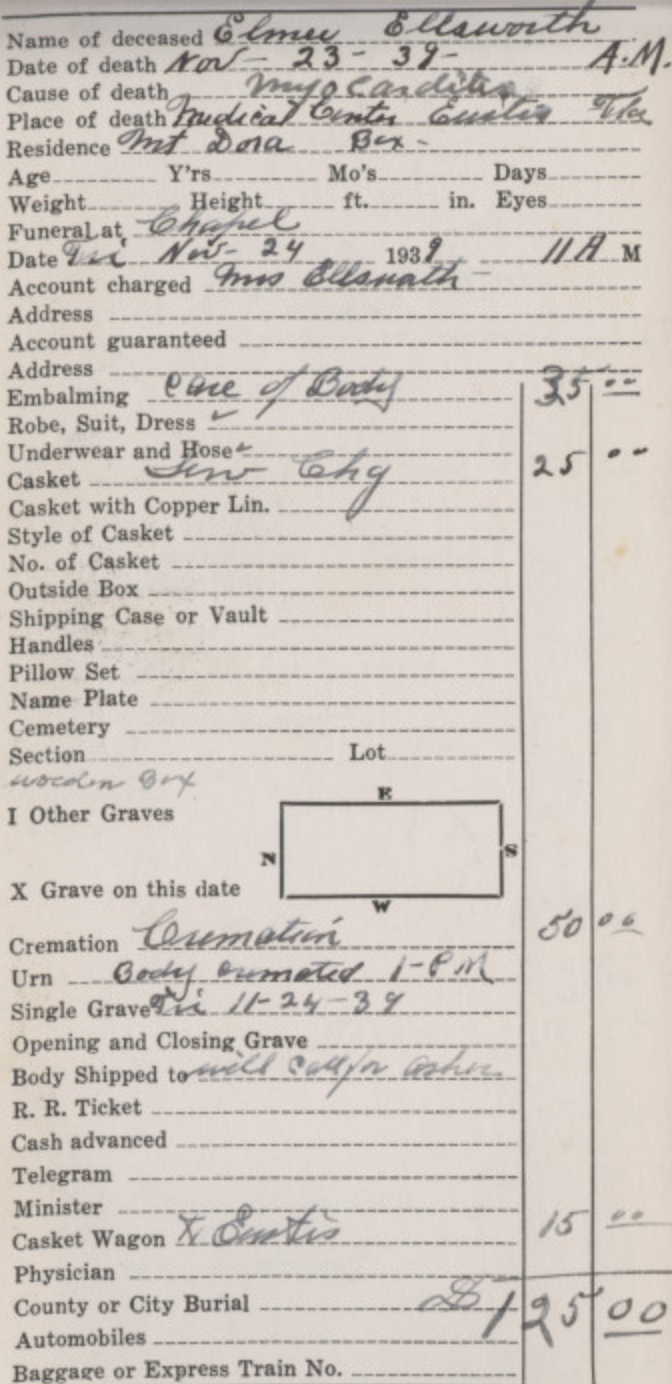 Name of deceased Elmer Ellsworth
Date of death Nov - 23 - 39 - A.M.
Cause of death myocarditis
Place of death Medical Center Eustis Fla
Residence Mt Dora Box -
Age Y'rs Mo's Days
Weight Height ft. in. Eyes
Funeral at Chapel
Date Fri Nov - 24 1939 11 A M
Account charged Mrs Ellsworth
Address
Account guaranteed
Address
Embalming Care of Body 35 00
Robe, Suit, Dress ✓
Underwear and Hose ✓
Casket Serv Chg 25 00
Casket with Copper Lin.
Style of Casket
No. of Casket
Outside Box
Shipping Case or Vault
Handles
Pillow Set
Name Plate
Cemetery
Section Lot
wooden Box
E
I Other Graves
N S
X Grave on this date
W
Cremation Cremation 50 00
Urn Body cremated 1 - P M
Single Grave Fri 11-24-39
Opening and Closing Grave
Body Shipped to will call for ashes
R. R. Ticket
Cash advanced
Telegram
Minister
Casket Wagon X Eustis 15 00
Physician
County or City Burial 125 00
Automobiles
Baggage or Express Train No.